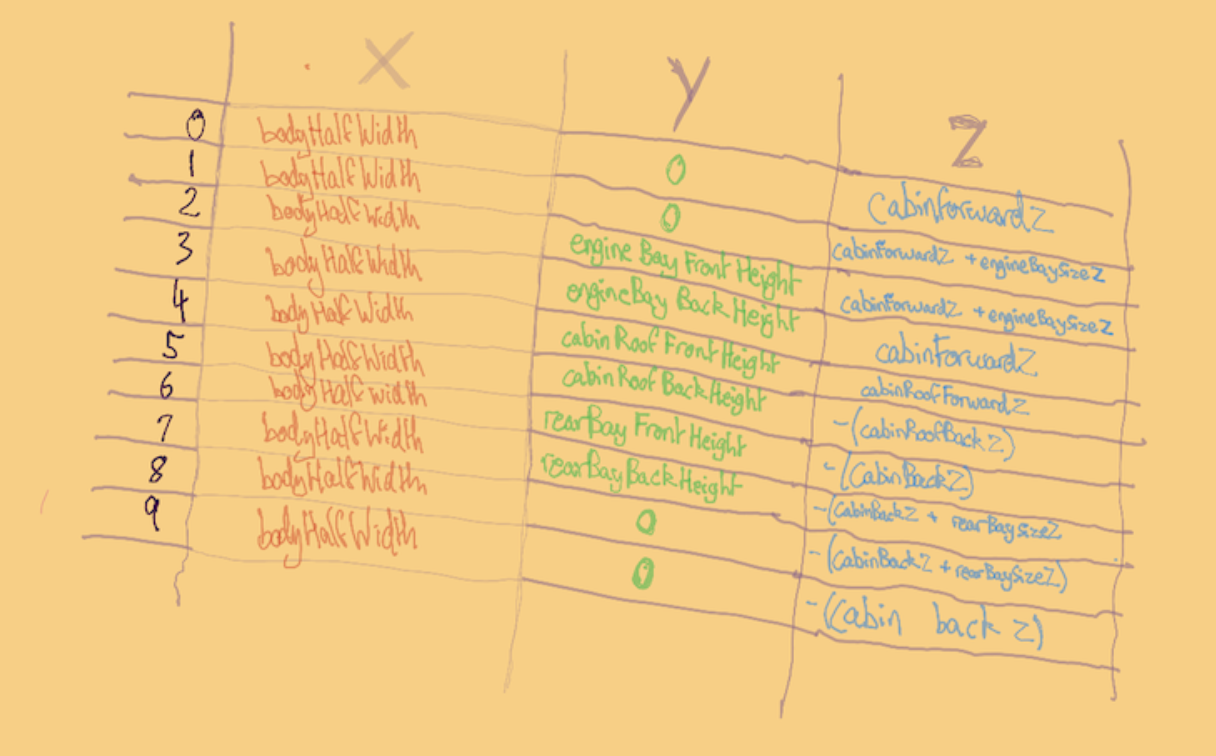 X Y Z
0 bodyHalfWidth 0 cabinForwardZ
1 bodyHalfWidth 0 cabinForwardZ + engineBaySizeZ
2 bodyHalfWidth engine Bay Front Height cabinForwardZ + engineBaySizeZ
3 bodyHalfWidth engineBay Back Height cabinForwardZ
4 bodyHalfWidth cabin Roof Front Height cabinRoofForwardZ
5 bodyHalfWidth cabin Roof Back Height -(cabinRoofBack Z)
6 bodyHalfWidth rearBay Front Height -(CabinBackZ)
7 bodyHalfWidth rearBay Back Height -(CabinBackZ + rearBaySizeZ
8 bodyHalfWidth 0 -(CabinBackZ + rearBaySizeZ)
9 bodyHalfWidth 0 -(Cabin back Z)